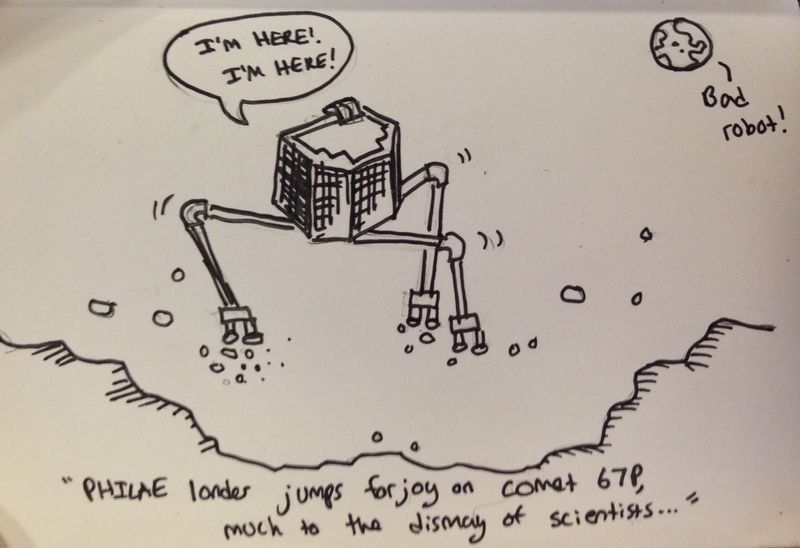 I'M HERE!
I'M HERE!
Bad
robot!
"PHILAE lander jumps for joy on comet 67P,
much to the dismay of scientists..."